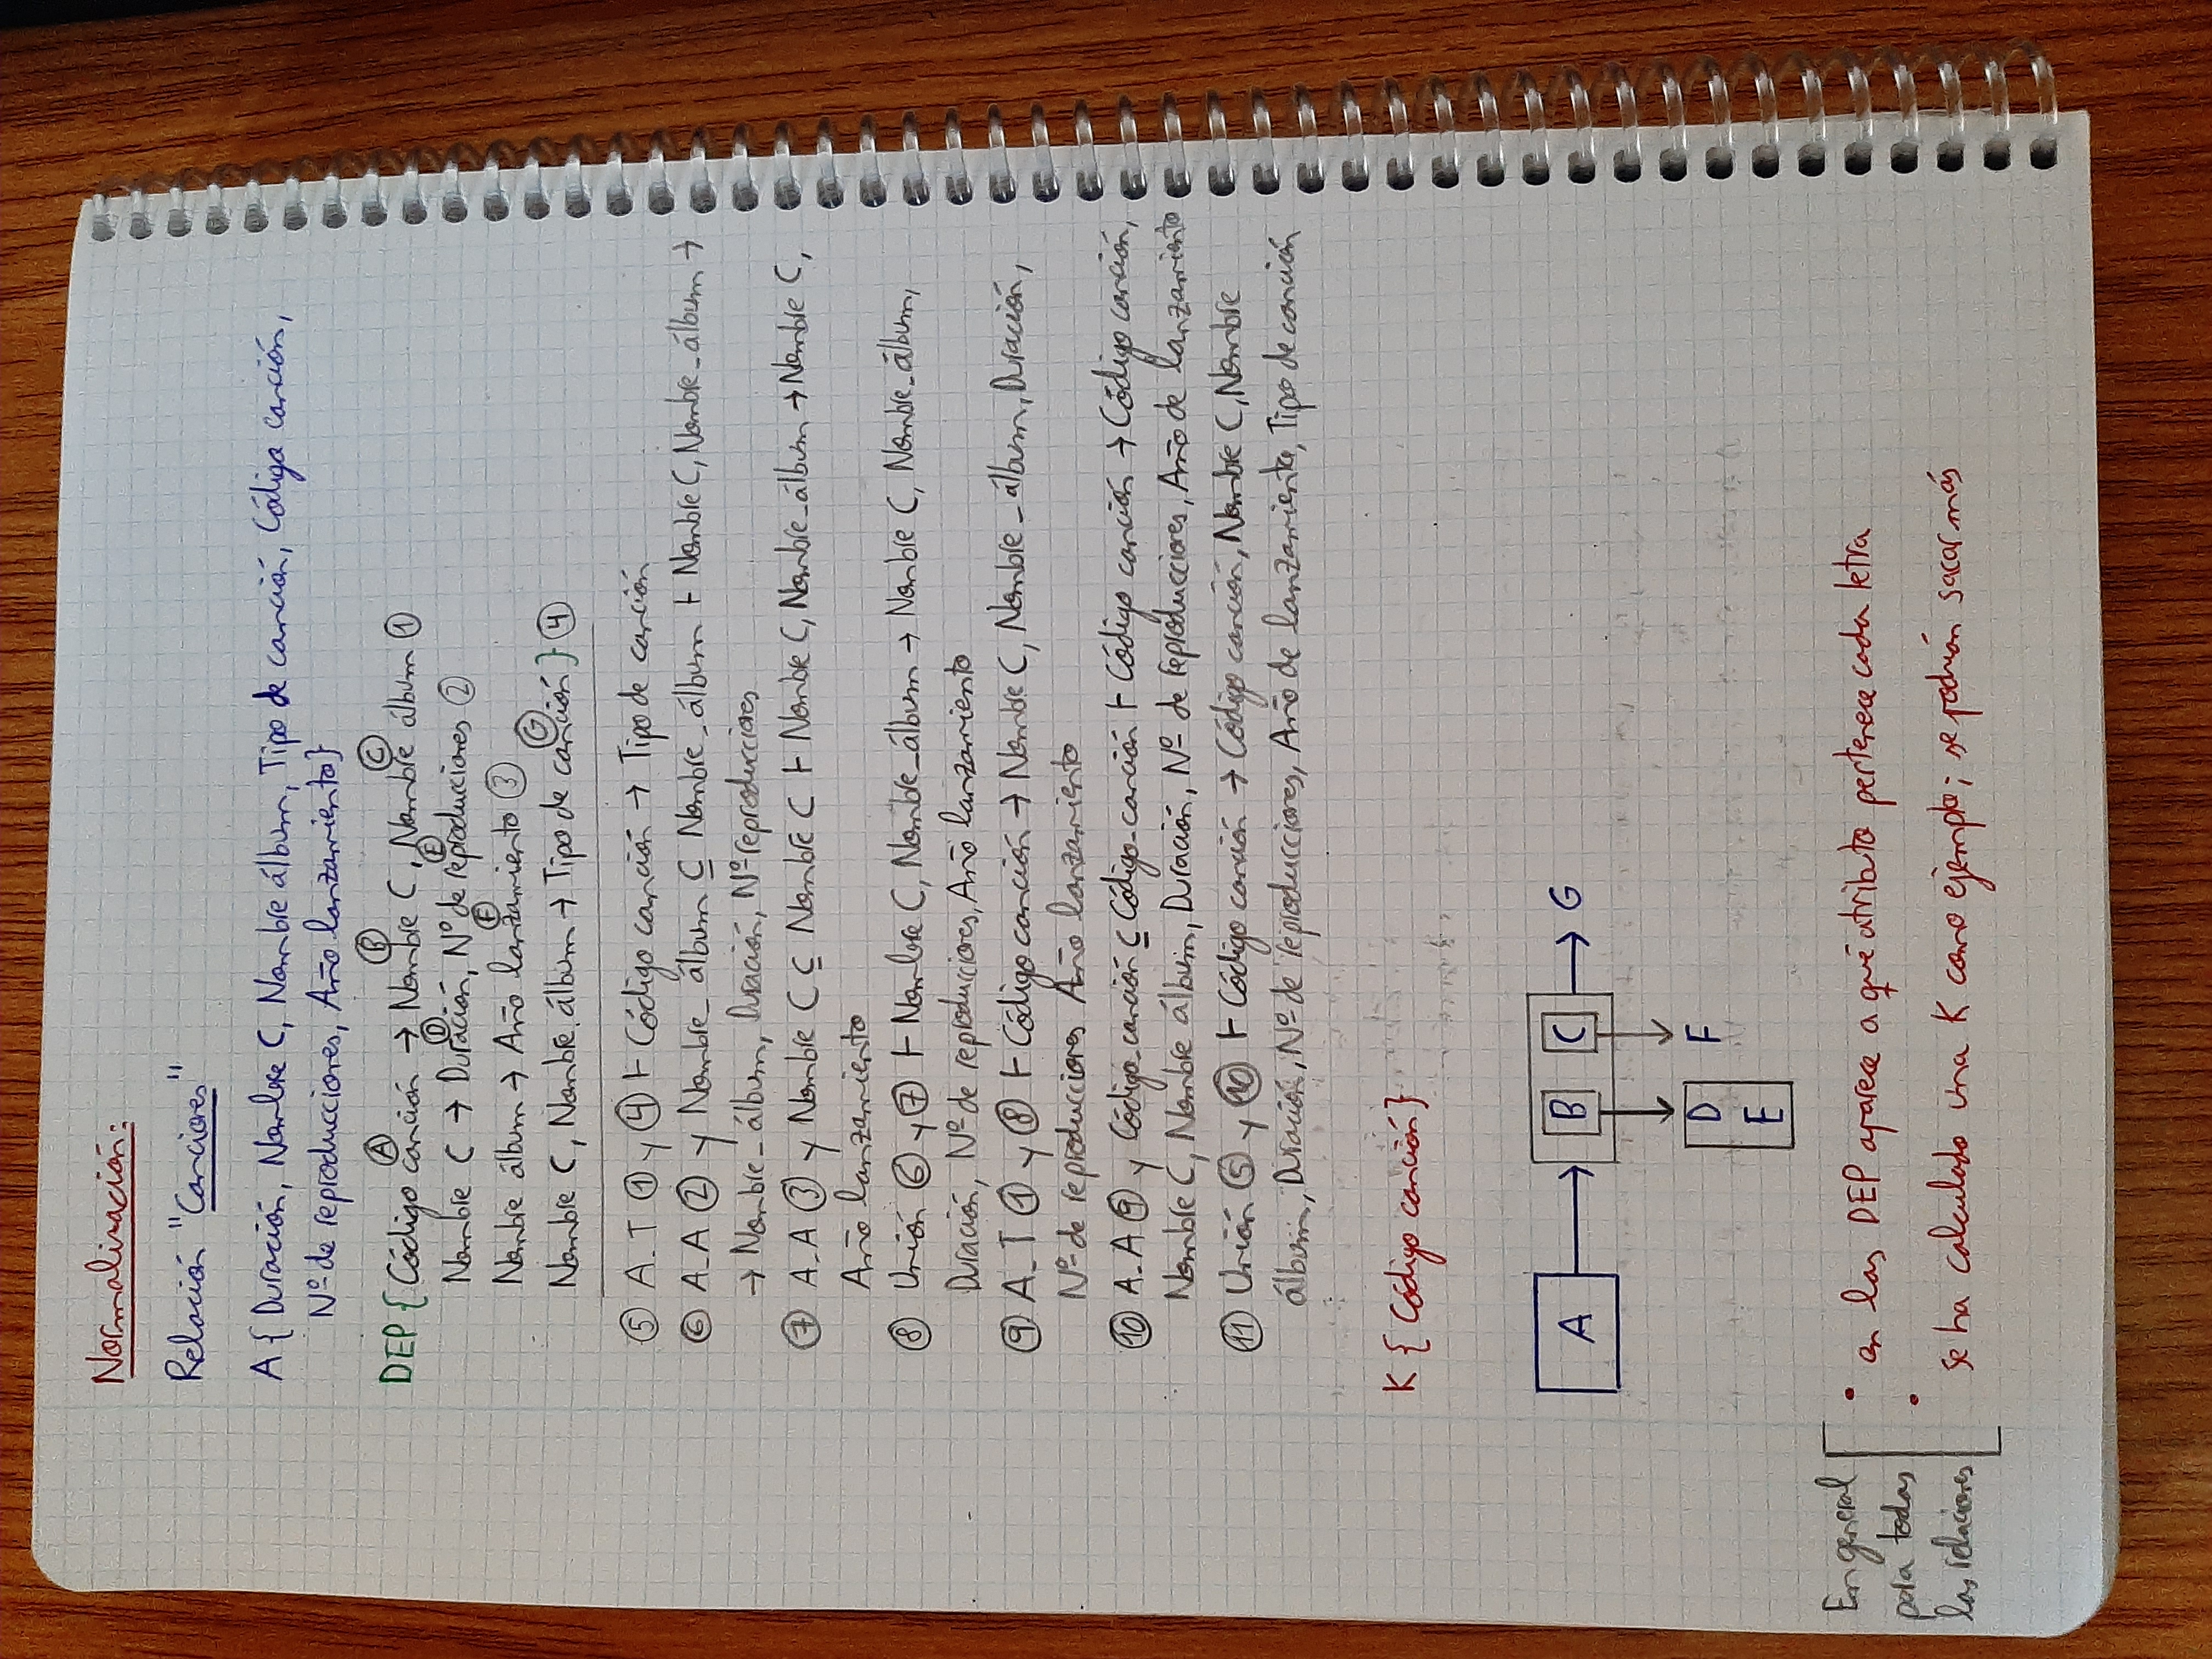 Normalización:
Relación "Canciones"
A { Duración, Nombre C, Nombre álbum, Tipo de canción, Código canción,
Nº de reproducciones, Año lanzamiento}
Ⓐ Ⓑ Ⓒ
DEP { Código canción → Nombre C, Nombre álbum ①
Ⓓ Ⓔ
Nombre C → Duración, Nº de reproducciones ②
Ⓕ
Nombre álbum → Año lanzamiento ③
Ⓖ
Nombre C, Nombre álbum → Tipo de canción } ④
⑤ A_T ① y ④ ⊢ Código canción → Tipo de canción
⑥ A_A ② y Nombre_álbum ⊆ Nombre_álbum ⊢ Nombre C, Nombre_álbum →
→ Nombre_álbum, Duración, Nº reproducciones
⑦ A_A ③ y Nombre C ⊆ Nombre C ⊢ Nombre C, Nombre_álbum → Nombre C,
Año lanzamiento
⑧ Unión ⑥ y ⑦ ⊢ Nombre C, Nombre_álbum → Nombre C, Nombre_álbum,
Duración, Nº de reproducciones, Año lanzamiento
⑨ A_T ① y ⑧ ⊢ Código canción → Nombre C, Nombre_álbum, Duración,
Nº de reproducciones Año lanzamiento
⑩ A_A ⑨ y Código_canción ⊆ Código_canción ⊢ Código canción → Código canción,
Nombre C, Nombre álbum, Duración, Nº de reproducciones, Año de lanzamiento
⑪ Unión ⑤ y ⑩ ⊢ Código canción → Código canción, Nombre C, Nombre
álbum, Duración, Nº de reproducciones, Año de lanzamiento, Tipo de canción
K { Código canción}
A → B C → G
D F
E
En general
para todas
las relaciones
• en las DEP aparece a qué atributo pertenece cada letra
• se ha calculado una K como ejemplo; se podrían sacar más